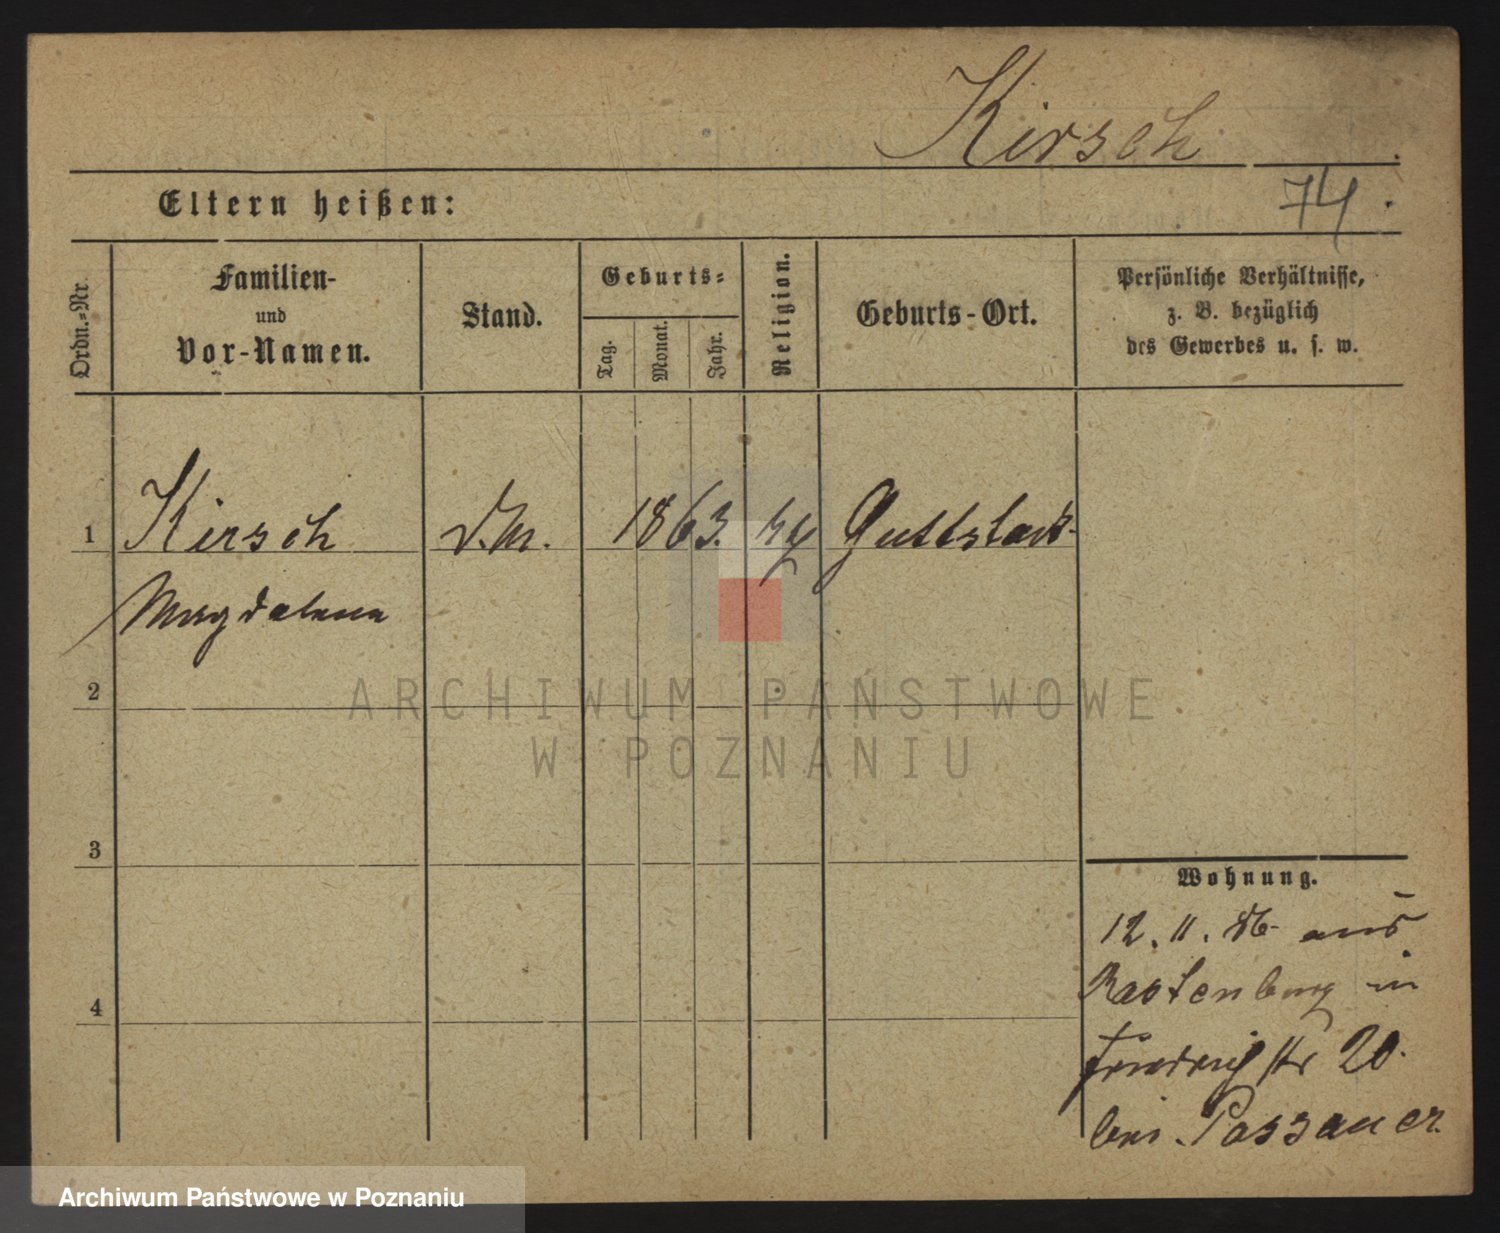 Kirsch
74.
Eltern heißen:
Ordn.-Nr.
Familien-
und
Vor-Namen.
Stand.
Geburts-
Tag.
Monat.
Jahr.
Religion.
Geburts-Ort.
Persönliche Verhältnisse,
z. B. bezüglich
des Gewerbes u. s. w.
1 Kirsch 1863. Guttstadt
Magdalena
2
ARCHIWUM PAŃSTWOWE
W POZNANIU
3
Wohnung.
12. 11. 86 aus
Rastenburg in
Friedrichstr 20.
bei Passauer
4
Archiwum Państwowe w Poznaniu